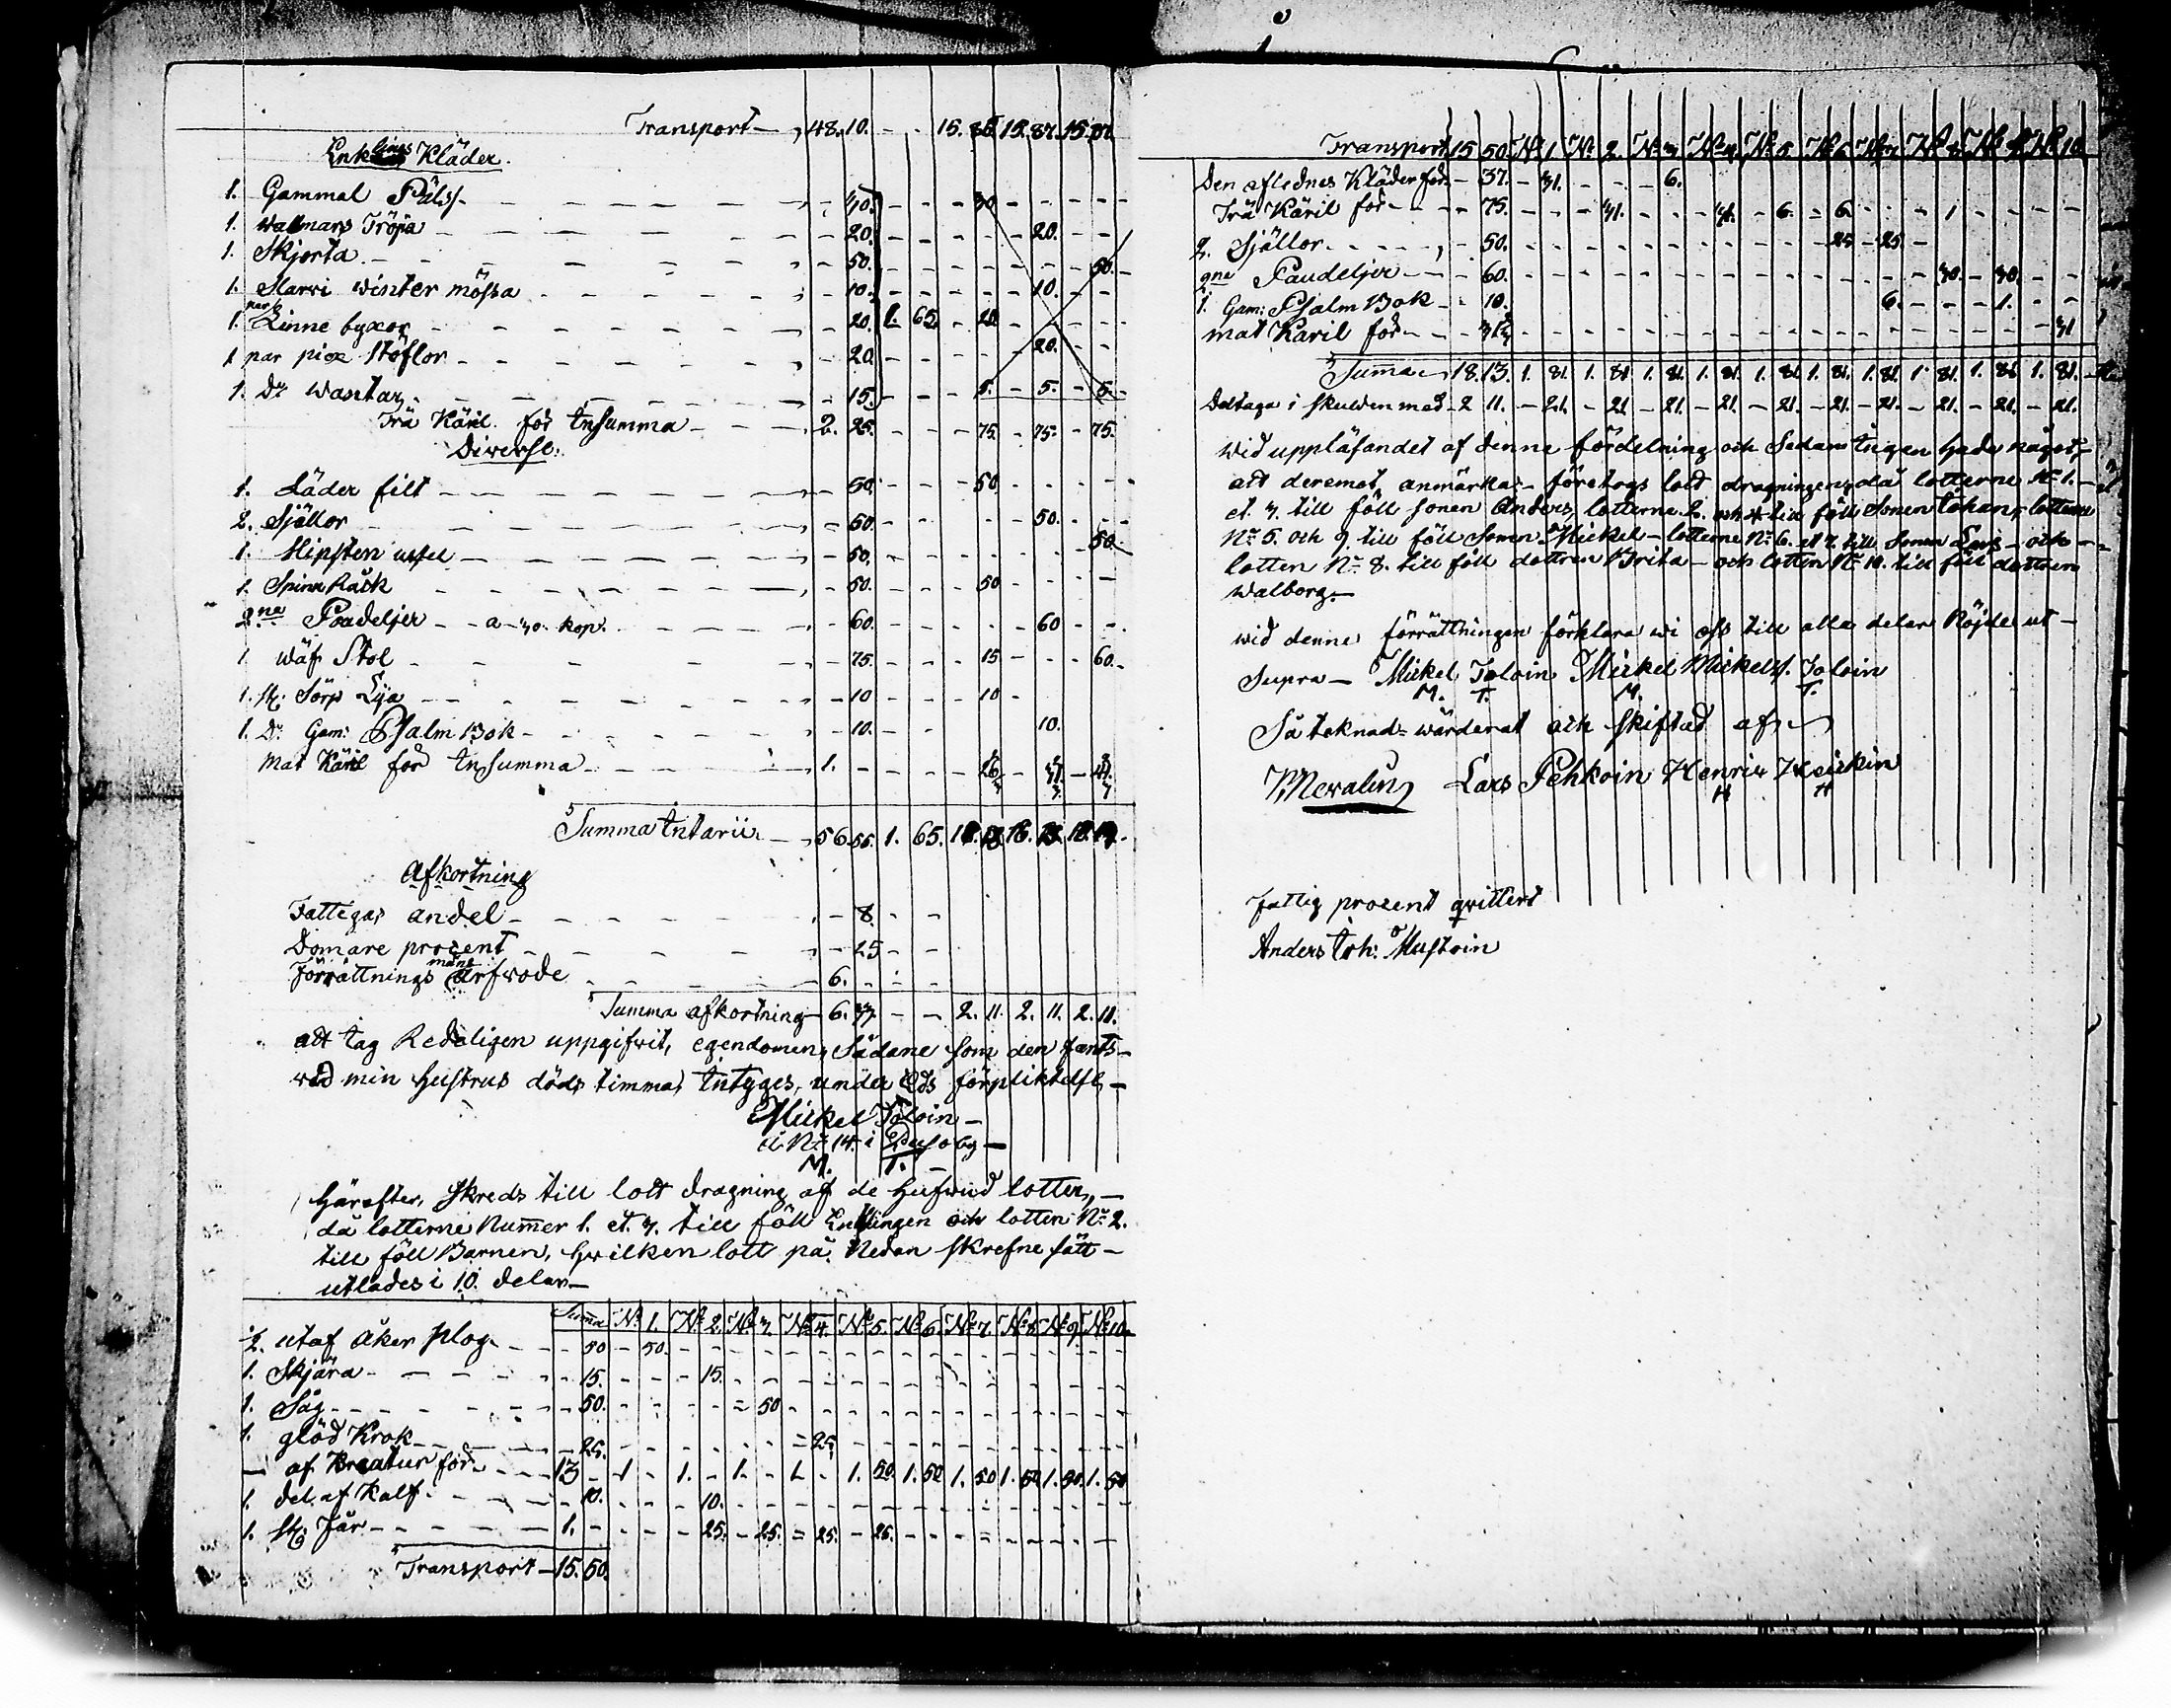 Transport — 48. 10. - - 15. 15. 87. 15.
Enklings Kläder.
1. Gammal Päls - 40. - - - 30 - - - -
1. Wallmans Tröja - 20. - - - - 20. - -
1. Skjorta - 50. - - - - - - 50.
1. Slarvi Winter mössa - 10. - - - - 10. - -
1. par Linne byxor - 20. 1. 65.
1 par pior Stöflor - 20. - - - - 20. - -
1. Do Wantar - 15. - - - 5. - 5. - 5.
Trä Käril för Insumma - 2. 25. - - - 75. - 75. - 75.
Diverse.
1. Läder filt - 50. - - - 50.
2. Själlor - 50. - - - - 50. - -
1. Slipsten - 50. - - - - - - 50.
1. Spinn Råck - 50. - - - 50 - - - -
2ne Poadeljer - a 30. kop. - 60. - - - - - 60 - -
1. Wäf Stol - 75. - - - 15 - - - 60.
1. St: Sörp - 10 - - - 10 -
1. Do Gam: Psalm Bok - 10. - - 10.
Mat Käril för Insumma - 1. - - - -
Summa Intarii — 56. 55. 1. 65. 18. 18. 18.
Afkortning
Fattigas andel - 8. - -
Domare procent - 25 - -
Förrättnings mäns Arfwode - 6. - - -
Summa afkortning - 6. 33. - - 2. 11. 2. 11. 2. 11.
att Iag Redeligen uppgifwit, egendomen, Sådane som den fants -
wid min Hustrus döds timma, Intyges, under Eds förpliktelse, -
Mickel Toloin -
å No 14. i by -
M. T.
Härefter, skreds till lott dragning af de Hufwud lotter, -
då lotterne Nummer 1. et. 3. till föll Enklingen och lotten No 2.
till föll Barnen, hwilken lott på Nedan skrefne sätt -
utlades i 10. delar -
Summa No 1. No 2. No 3. No 4. No 5. No 6. No 7. No 8. No 9. No 10.
½. utaf åker plog - 50 - 50. - -
1. Skjära - 15. - - - 15. - -
1. Såg - 50. - - - - - 50 - -
1. glöd Krok - 25. - - - - - - - 25. - -
— af Kreatur för - 13 - 1 - 1. - 1. - 1. - 1. 50. 1. 50 1. 50 1. 50 1. 50. 1. 50
1. del. af Kalf. - 10. - - - 10. - -
1. St: Får - 1. - - - - 25. - 25. - 25. - 25. - -
Transport - 15. 50.
Transport 15 50. No 1 No 2. No 3. No 4. No 5 No 6 No 7 No 8. No 9. No 10
Den aflednes Kläder för - 37. - 31. - - - 6.
Trä Käril för - 75. - - - 31. - - - 31. - 6. - 6. - - - 1 - - - -
2. Själlor - 50. - - 25 - 25 -
2ne Paudeljer - 60. - - 30. - 30. - -
1. Gam: Psalm Bok - 10. - - 6. - - - 1. - -
mat Käril för - 31. - - 31
Summa 18. 13. 1. 81. 1. 81. 1. 81. 1. 81. 1. 81. 1. 81. 1. 81. 1. 81. 1. 81. 1. 81.
Deltaga i skulden med - 2 11. - 21. - 21 - 21. - 21. - 21. - 21. - 21. - 21. - 21. - 21.
Wid uppläsandet af denne fördelning och Sedan Ingen hade något -
att deremot anmärka - företogs lott dragningen, då lotterne No 1. -
et. 3. till föll sonen Anders, lotterne 2. och 4. till föll Sonen Iohan, lotterne
No 5. och 9. till föll Sonen Mickel - lotterne No 6. et 7. till Sonen Lars - och -
lotten No 8. till föll dottren Brita - och lotten No 10. till föll dottren
Walborg. -
wid denne förrättningen förklara wi oss till alla delar Nöjde ut -
Supra - Mickel Toloin Mickel Mickels. Toloin
M. T. M. T.
Så teknad - wärderat och skiftad af
Lars Pehkoin Henrik Heikin
H H
Fattig procent qvittert
Anders Joh: Mustoin